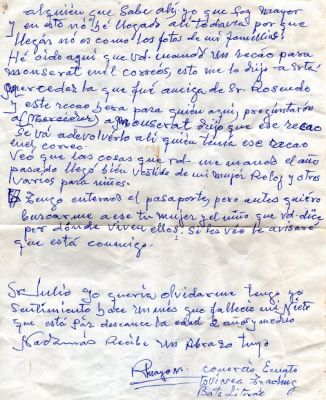 alguien que sabe ali, yo que soy mayor
y en esto no hé llegado ali todavía por que
llegár no es como los fotos de mi familia.
Hé oido aqui que vd. mandó un recao para
monserat en el correos, esto me lo dijo a esta
mercedez la que fué amiga de Sr. Rosendo
y este recao bera para quién aqui, pregúntaron
a (mercedez) a monserat dijo que ese recao
se vá a devolverlo ali quien tenia ese recao
en el correo.
Veo que las cosas que vd- me mandó el año
pasado llegó bién vestido de mi mujér Reloj y otros
varios para niños.
Tengo enterado el pasaporte, pero antes quiéro
buscarme a ese tu mujer y el niño que vd. dice
por dónde viven ellos. Si les veo te avisaré
que está conmigo.
Sr. Julio yo queria olvidarme tengo yo
sentimiento hace un més que falleció mi Nieto
que está páz descance la edad 2 años y medio
Nadamás Recibe un Abrazo tuyo
comercio
Bata Litorál